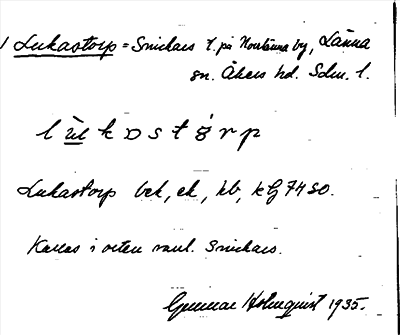 Lukastorp = Snickars t. på Norrlänna by, Länna
sn. Åkers hd. Sdm. l.
l ù̲l̲ k ɒ s t ǫ́ r p
Lukastorp bek, ek, kb, kG 7450.
Kallas i orten vanl. Snickars.
Gunnar Holmquist 1935.